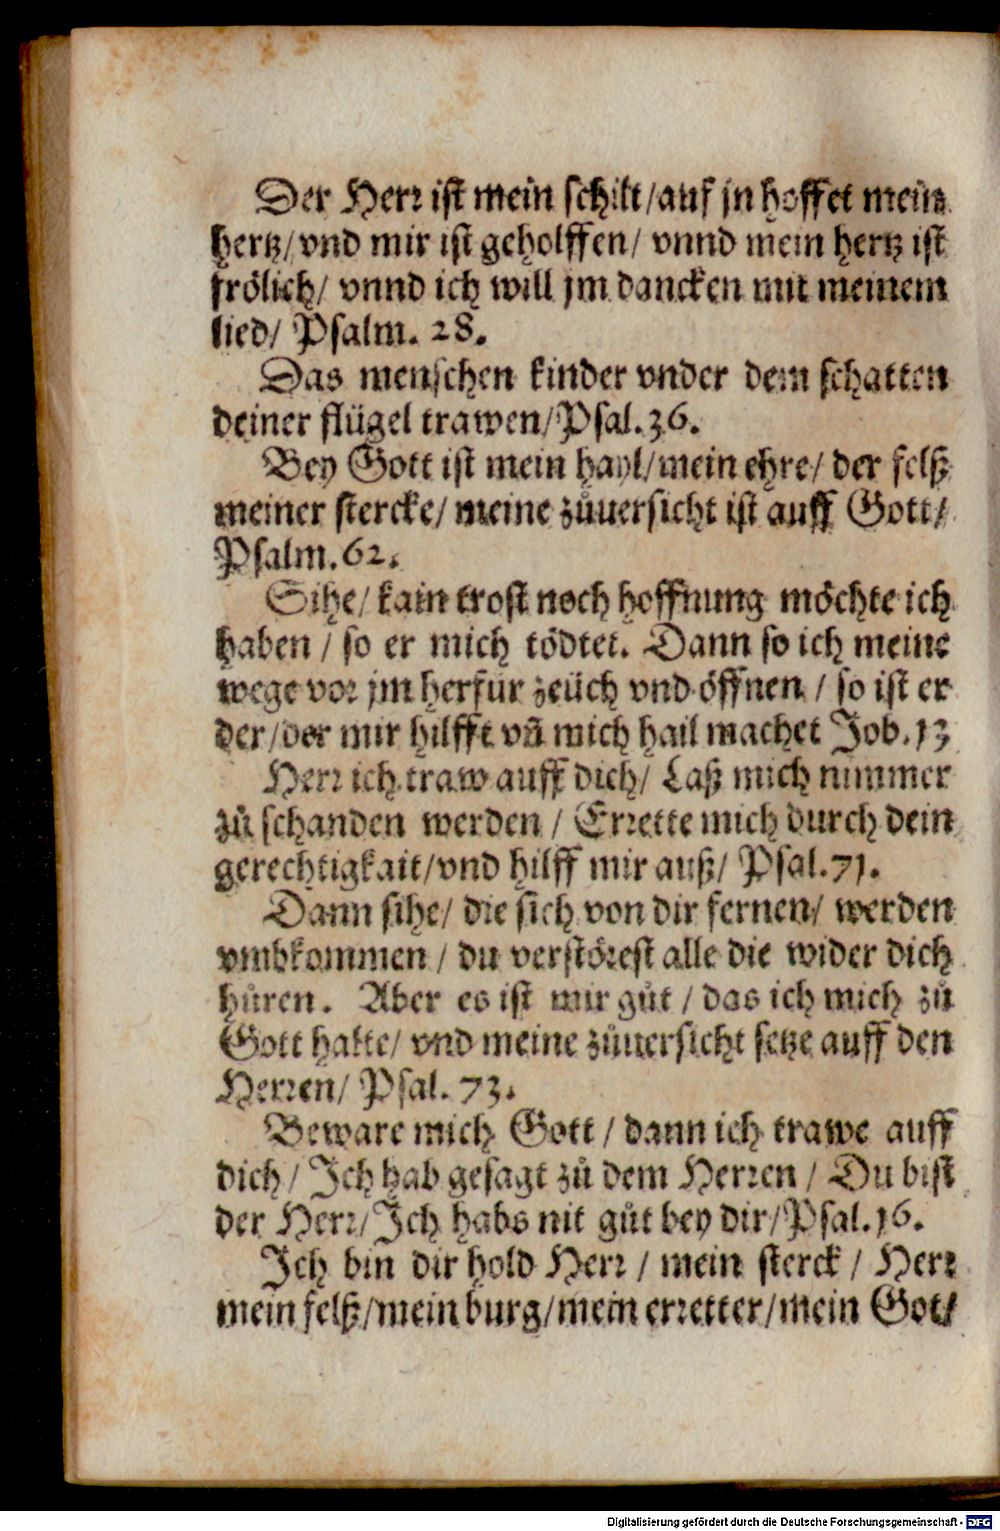 Der Herꝛ iſt mein ſchilt/auf jn hoffet mein
hertz/vnd mir iſt geholffen/ vnnd mein hertz iſt
froͤlich/ vnnd ich will jm dancken mit meinem
lied/ Pſalm. 28.
Das menſchen kinder vnder dem ſchatten
deiner fluͤgel trawen/Pſal.36.
Bey Gott iſt mein hayl/mein ehre/ der felß
meiner ſtercke/ meine zůuerſicht iſt auff Gott/
Pſalm.62.
Sihe/ kain troſt noch hoffnung moͤchte ich
haben / ſo er mich toͤdtet. Dann ſo ich meine
wege voꝛ jm herfur zeuͤch vnd oͤffnen / ſo iſt er
der/der mir hilfft vñ mich hail machet Job.13
Herꝛ ich traw auff dich/ Laß mich nimmer
zů ſchanden werden / Erꝛette mich durch dein
gerechtigkait/vnd hilff mir auß/ Pſal.71.
Dann ſihe/ die ſich von dir fernen/ werden
vmbkommen / du verſtoͤꝛeſt alle die wider dich
hůren. Aber es iſt mir gůt / das ich mich zů
Gott halte/ vnd meine zůuerſicht ſetze auff den
Herꝛen/ Pſal. 73.
Beware mich Gott / dann ich trawe auff
dich / Ich hab geſagt zů dem Herꝛen / Du biſt
der Herꝛ/Ich habs nit gůt bey dir/Pſal.16.
Ich bin dir hold Herꝛ / mein ſterck / Herꝛ
mein felß/mein burg/mein erꝛetter/mein Got/
Digitalisierung gefördert durch die Deutsche Forschungsgemeinschaft - DFG